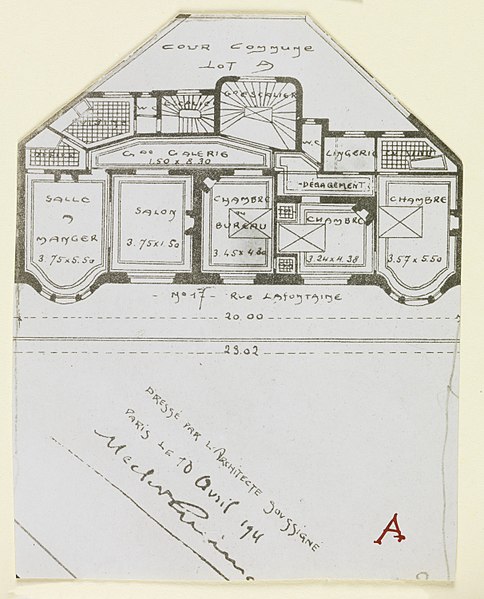 COUR COMMUNE
LOT A
W.C
W.C
LINGERIE
Gde GALERIE
1.50 x 8.30
DEGAGEMENT
SALLE
A
MANGER
3.75x5.50
SALON
3.75x1.50
CHAMBRE
OU
BUREAU
3.45x4.20
CHAMBRE
3.24x4.38
CHAMBRE
3.57x5.50
No 17 - RUE LAFONTAINE
20.00
29.02
DRESSÉ PAR L'ARCHITECTE SOUSSIGNÉ
PARIS LE 10 Avril 1911
Hector Guimard
A